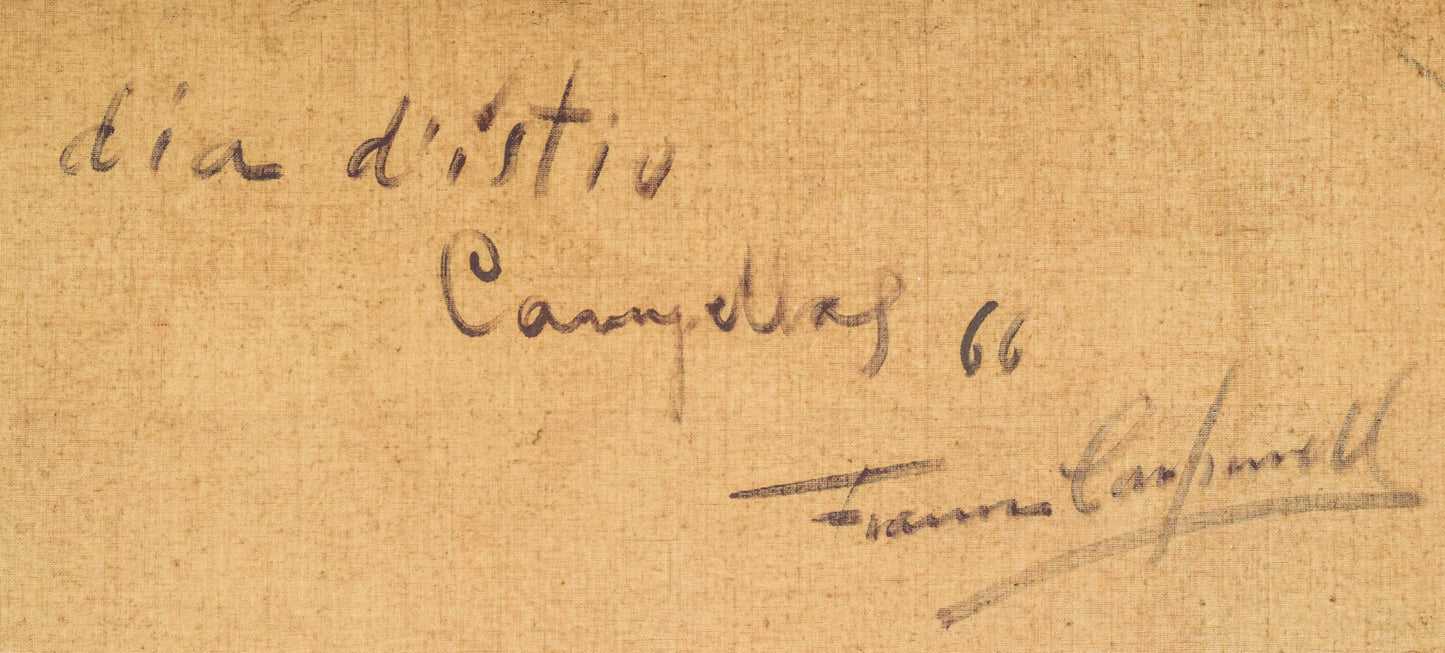 dia d'istiu
Campellas 66
Francesc Carbonell